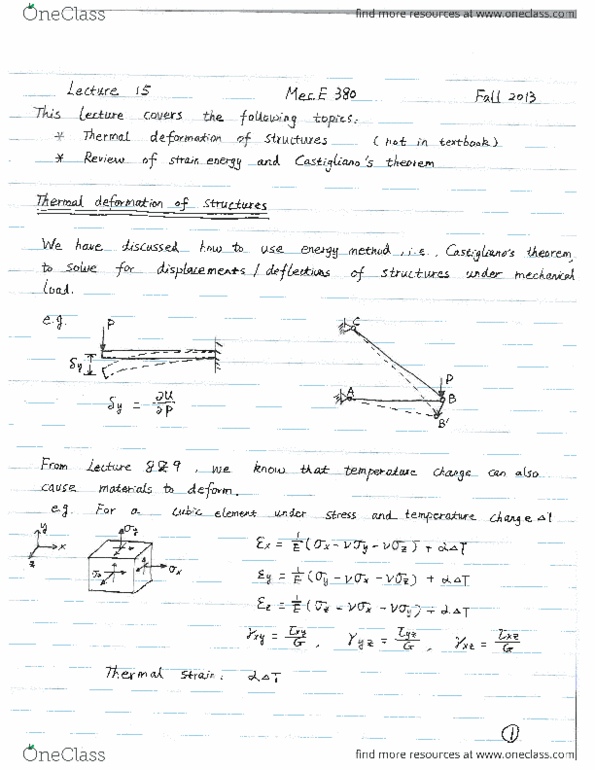 OneClass
find more resources at www.oneclass.com
Lecture 15 Mec.E 380 Fall 2013
This lecture covers the following topics:
* Thermal deformation of structures (not in textbook)
* Review of strain energy and Castigliano's theorem
Thermal deformation of structures
We have discussed how to use energy method, i.e., Castigliano's theorem,
to solve for displacements / deflections of structures under mechanical
load.
e.g.
P
δy
δy = ∂U/∂P
C
A
P
B
B'
From Lecture 8&9, we know that temperature change can also
cause materials to deform.
e.g. For a cubic element under stress and temperature change ΔT
y
x
z
σy
σx
σz
εx = 1/E (σx - νσy - νσz) + αΔT
εy = 1/E (σy - νσx - νσz) + αΔT
εz = 1/E (σz - νσx - νσy) + αΔT
γxy = τxy/G, γyz = τyz/G, γxz = τxz/G
Thermal strain: αΔT
1
OneClass
find more resources at www.oneclass.com